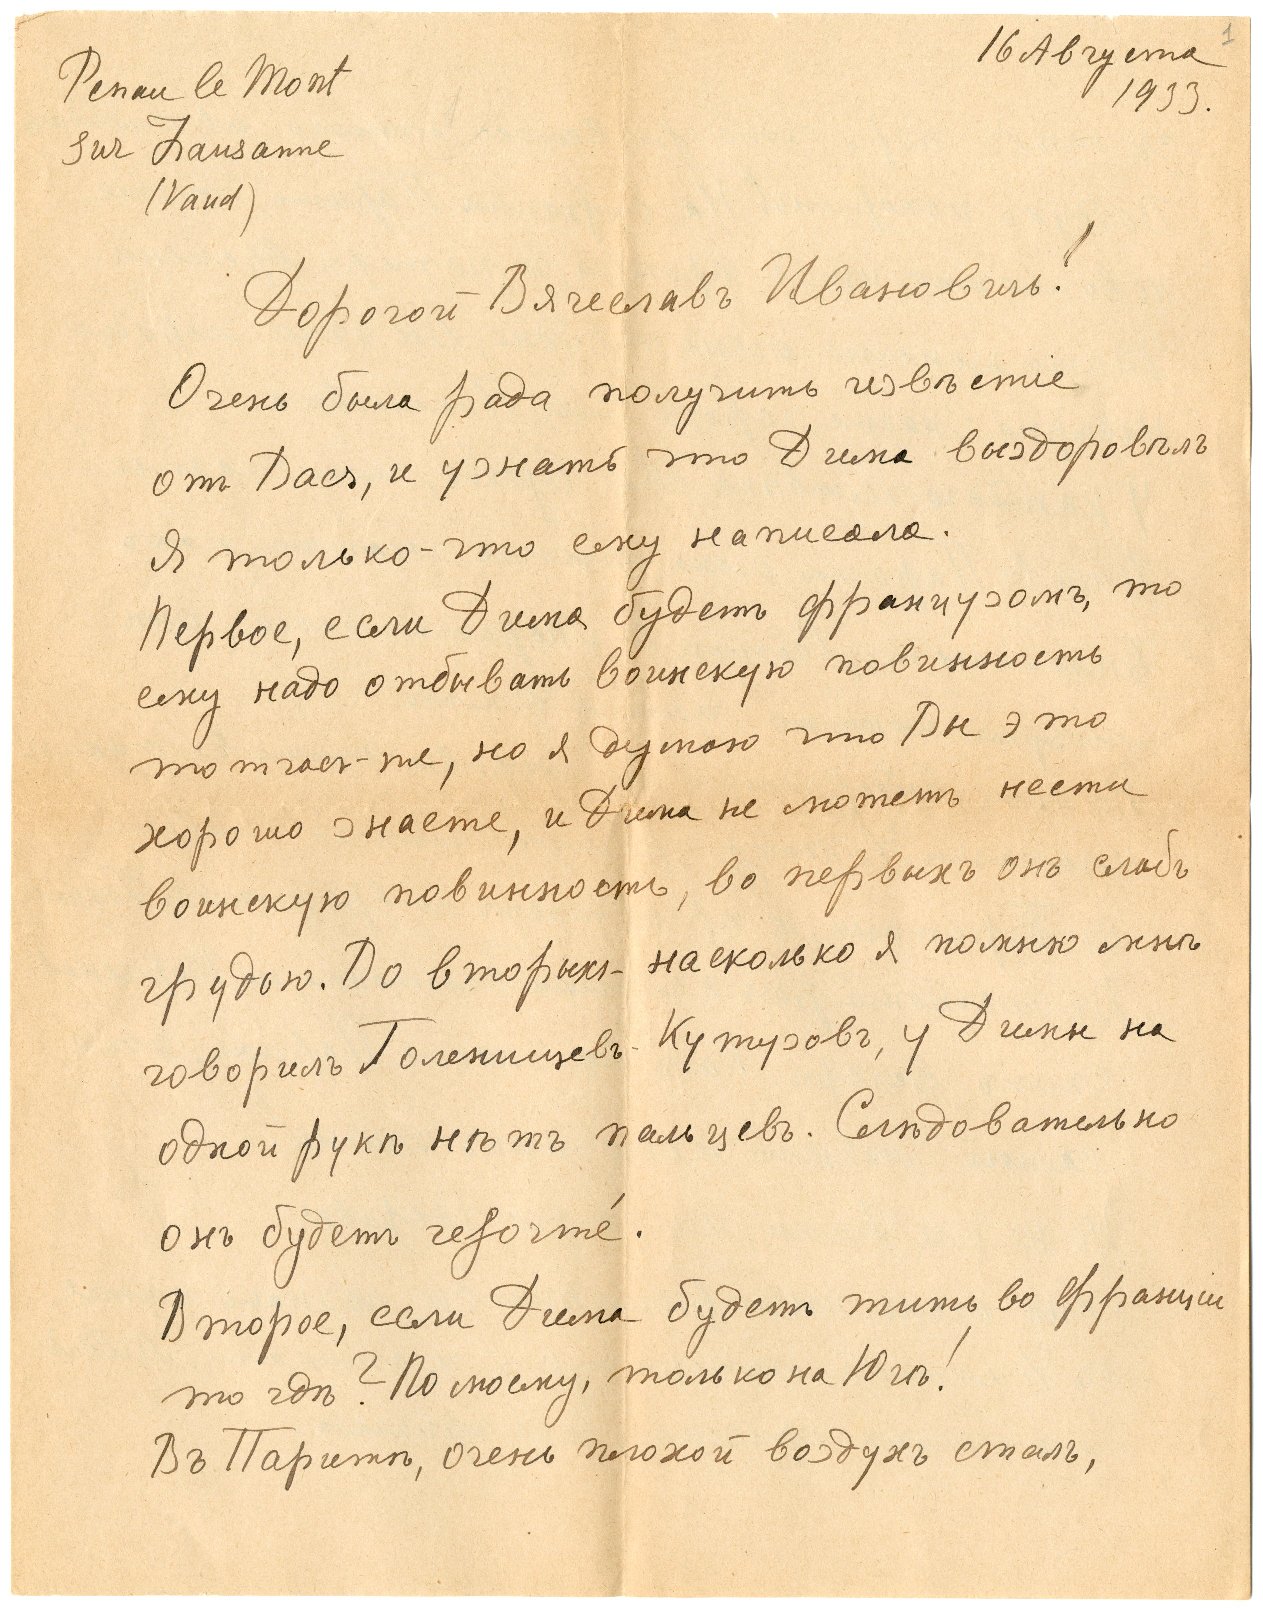 1
16 Августа
1933.
Penau le Mont
sur Lausanne
(Vaud)
Дорогой Вячеславъ Ивановичъ!
Очень была рада получить извѣстіе
отъ Васъ, и узнать что Дима выздоровѣлъ
Я только-что ему написала.
Первое, если Дима будетъ французомъ, то
ему надо отбывать воинскую повинность
тотчасъ-же, но я думаю что Вы это
хорошо знаете, и Дима не можетъ нести
воинскую повинность, во первыхъ онъ слабъ
грудью. Во вторыхъ- насколько я помню мнѣ
говорилъ Голенищевъ-Кутузовъ, у Димы на
одной рукѣ нѣтъ пальцевъ. Слѣдовательно
онъ будетъ reformé.
Второе, если Дима будетъ жить во Франціи
то гдѣ? По моему, только на Югѣ!
Въ Парижѣ, очень плохой воздухъ сталъ,